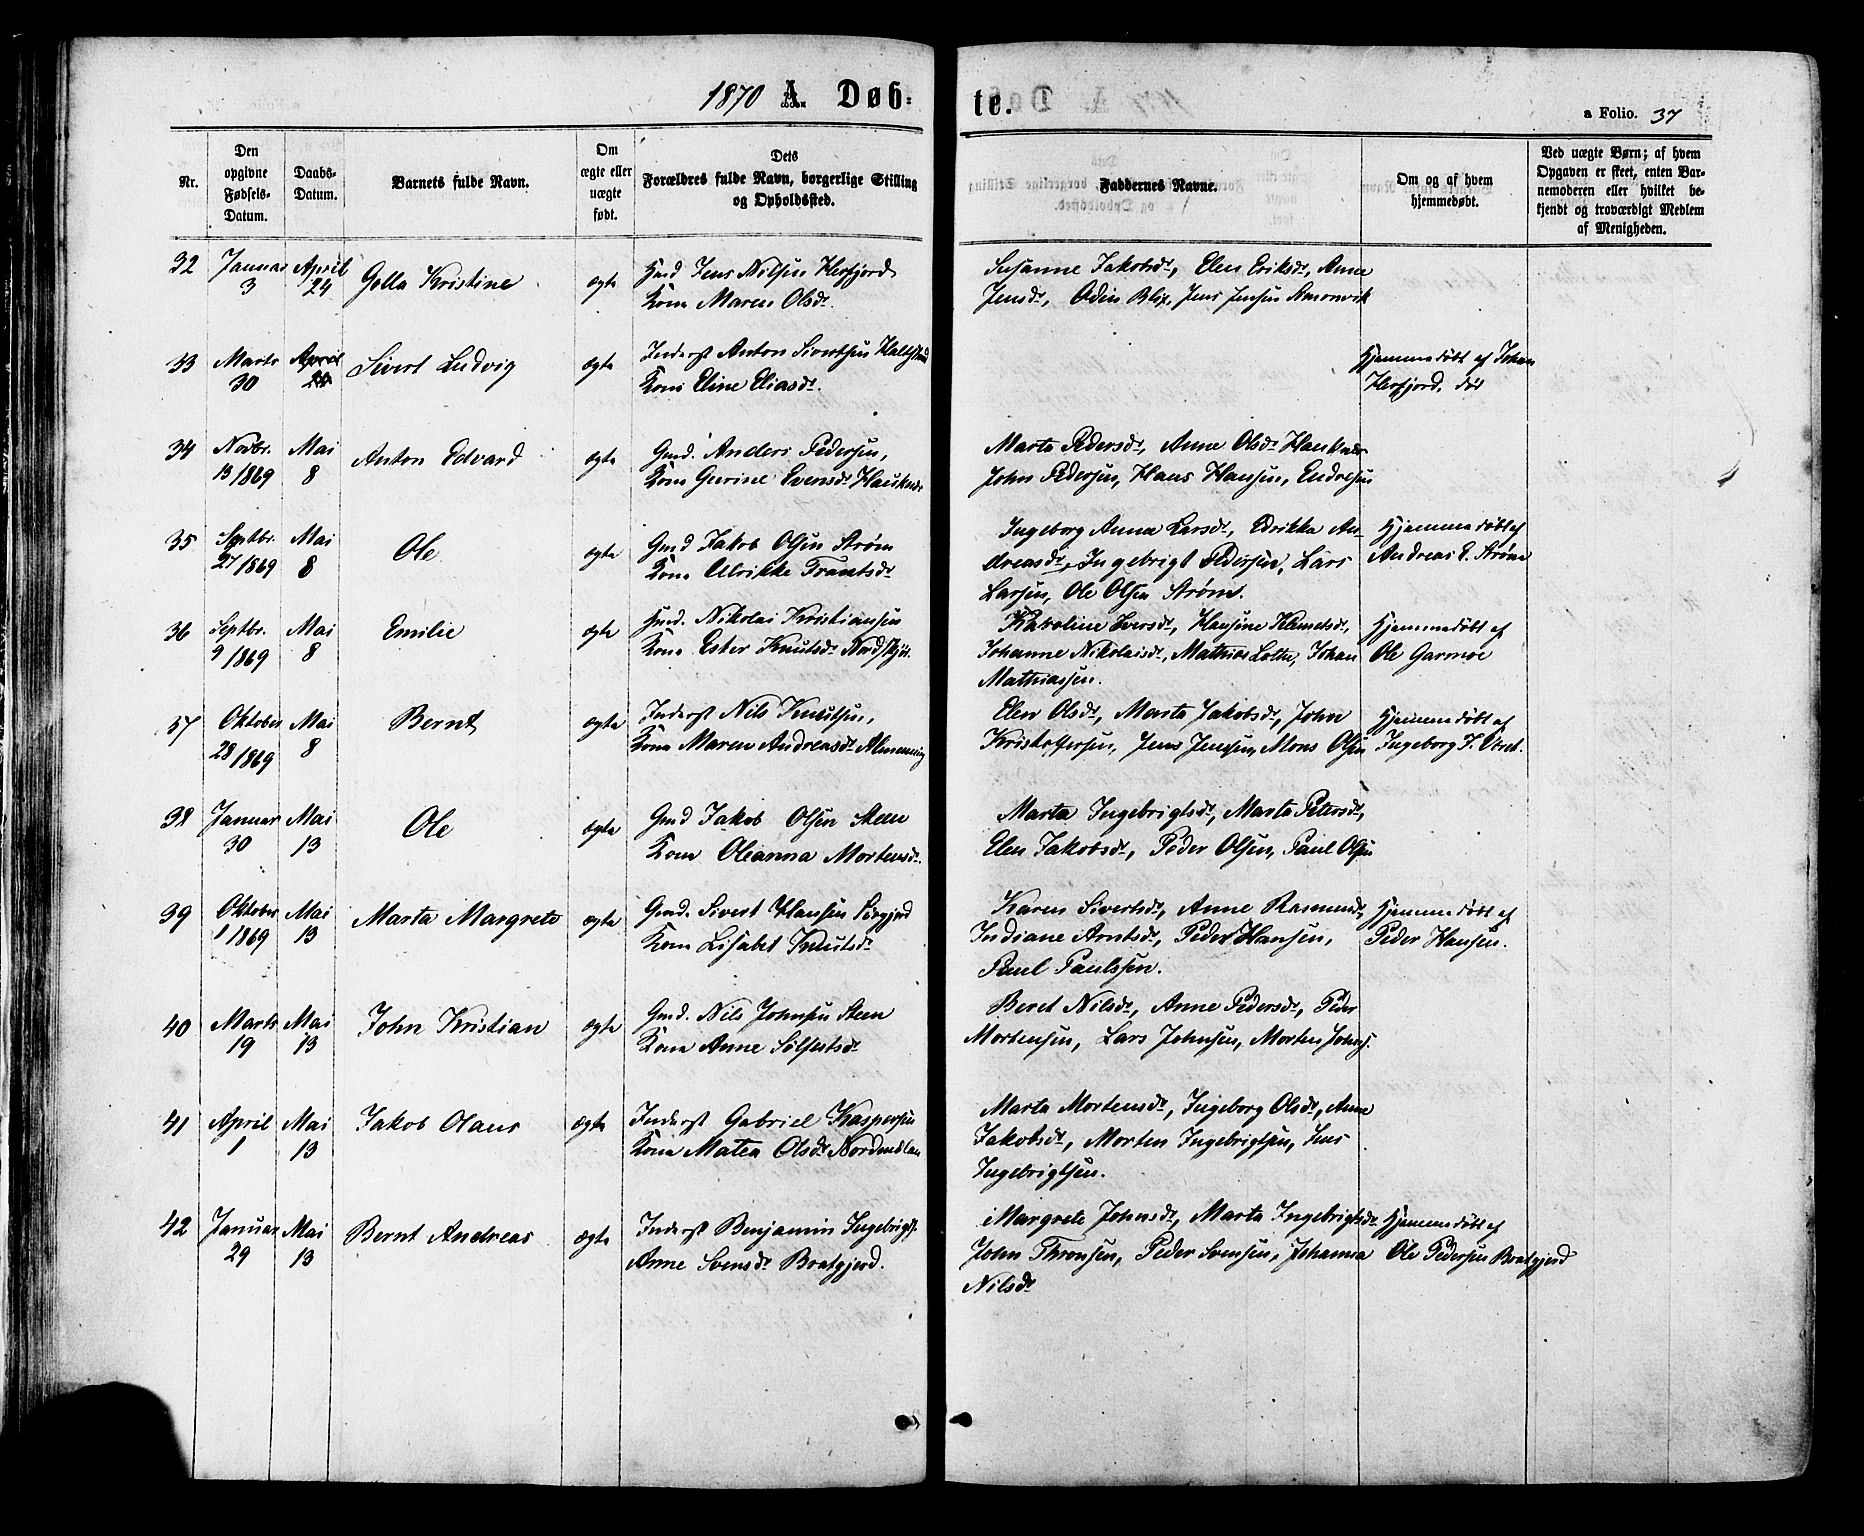 1870 A. Døb=
te.
a Folio. 37
Nr.
Den opgivne Fødsels-Datum.
Daabs-Datum.
Barnets fulde Navn.
Om ægte eller uægte født.
Dets Forældres fulde Navn, borgerlige Stilling og Opholdssted.
Faddernes Navne.
Om og af hvem hjemmedøbt.
Ved uægte Børn; af hvem Opgaven er skeet, enten Barnemoderen eller hvilket bekjendt og troværdigt Medlem af Menigheden.
32 Januar 3 April 24 Golla Kristine ægte
Gmd Jens Nilsen Herfjord
Kone Maren Olsdr.
Susanne Jakobsdr, Elen Eriksdr, Anne
Jensdr, Odin Blix, Jens Jensen
33 Marts 30 April Sivert Ludvig ægte
Inderst Anton Sivertsen
Kone Eline Eliasdr.
Hjemmedøbt af Johan
Herfjord. død
34 Novbr. 13/1869 Mai 8 Anton Edvard ægte
Gmd. Anders Pedersen,
Kone Gurine Evensdr
Marta Pedersdr, Anne Olsdr
John Pedersen, Hans Hansen, Endresen
35 Septbr. 27/1869 Mai 8 Ole ægte
Gmd Jakob Olsen Strøm
Kone Ulrikke Frantsdr
Ingeborg Anna Larsdr, Edrikka An-
dreasdr, Ingebrigt Pedersen, Lars
Larsen, Ole Olsen Strøm.
Hjemmedøbt af
Andreas E. Strøm
36 Septbr. 9/1869 Mai 8 Emilie ægte
Gmd. Nikolai Kristiansen
Kone Ester Knutsdr
Karoline Iversdr, Hansine Klemetsdr,
Johanne Nikolaisdr, Mathias Lothe, Johan
Mathiassen.
Hjemmedøbt af
Ole Garmoe
37 Oktober 28/1869 Mai 8 Bernt ægte
Inderst Nils Knutsen,
Kone Maren Andreasdr Almenning
Elen Olsdr, Marta Jakobsdr, John
Kristoffersen, Jens Jensen, Mons Olsen
Hjemmedøbt af
Ingeborg
38 Januar 30 Mai 13 Ole ægte
Gmd Jakob Olsen Steen
Kone Oleanna Mortensdr.
Marta Ingebrigtsdr, Marta Petersdr,
Elen Jakobsdr, Peder Olsen, Paul Olsen
39 Oktober 1/1869 Mai 13 Marta Margrete ægte
Gmd. Sivert Hansen Sørgjerd
Kone Lisabet Knutsdr
Karen Sivertsdr, Anne Rasmusdr,
Indiane Arntsdr, Peder Hansen,
Paul Paulssen.
Hjemmedøbt af
Peder Hansen.
40 Marts 19 Mai 13 John Kristian ægte
Gmd. Nils Johnsen Steen
Kone Anne Sølfestsdr
Beret Nilsdr, Anne Pedersdr, Peder
Mortensen, Lars Johnsen, Morten Johns.
41 April 1 Mai 13 Jakob Olaus ægte
Inderst Gabriel Kaspersen
Kone Matea Olsdr
Marta Mortensdr, Ingeborg Olsdr, Anne
Jakobsdr, Morten Ingebrigtsen, Jens
Ingebrigtsen.
42 Januar 29 Mai 13 Bernt Andreas ægte
Inderst Benjamin Ingebrigts.
Anne Svensdr Bratgjerd.
Margrete Johnsdr, Marta Ingebrigtsdr
John Thronsen, Peder Svensen, Johanna
Nilsdr
Hjemmedøbt af
Ole Pedersen Bratgjerd